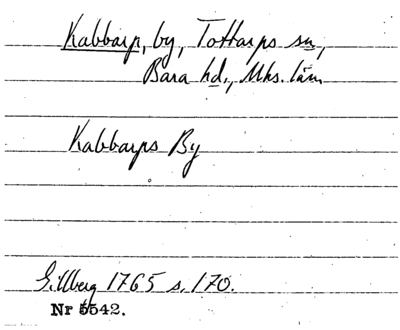 Kabbarp, by, Tottarps sn,
Bara hd., Mhs. län
Kabbarps By
Gillberg 1765 s. 170.
Nr 5542.